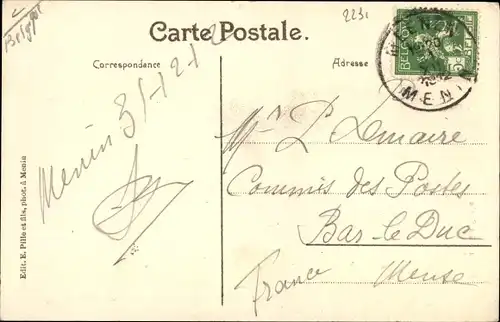 Belgique
2231
Carte Postale.
Correspondance
Adresse
MENIN
MEN
BELGIQUE
BELGIË
5
Menin 31-12-12
Mr L Lemaire
Commis des Postes
Bar-le-Duc
Meuse
France
Edit. E. Pille et fils, phot. à Menin